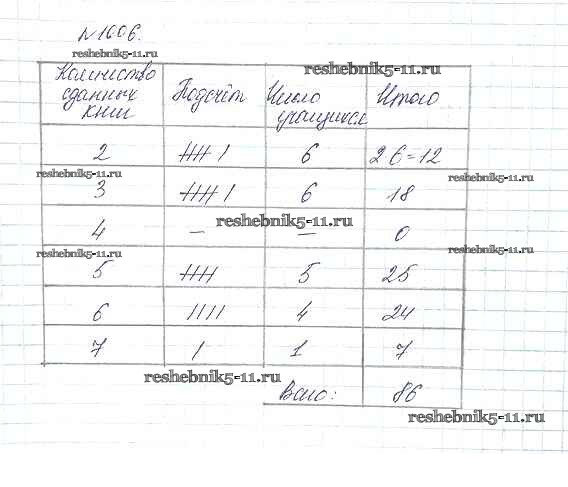 №1006.
reshebnik5-11.ru
Количество сданных книг Подсчёт Число учащихся Итого
reshebnik5-11.ru
2 HHH I 6 2·6=12
reshebnik5-11.ru reshebnik5-11.ru
3 HHH I 6 18
reshebnik5-11.ru
4 – – 0
reshebnik5-11.ru reshebnik5-11.ru
5 HHH 5 25
6 IIII 4 24
7 I 1 7
reshebnik5-11.ru
Всего: 86
reshebnik5-11.ru